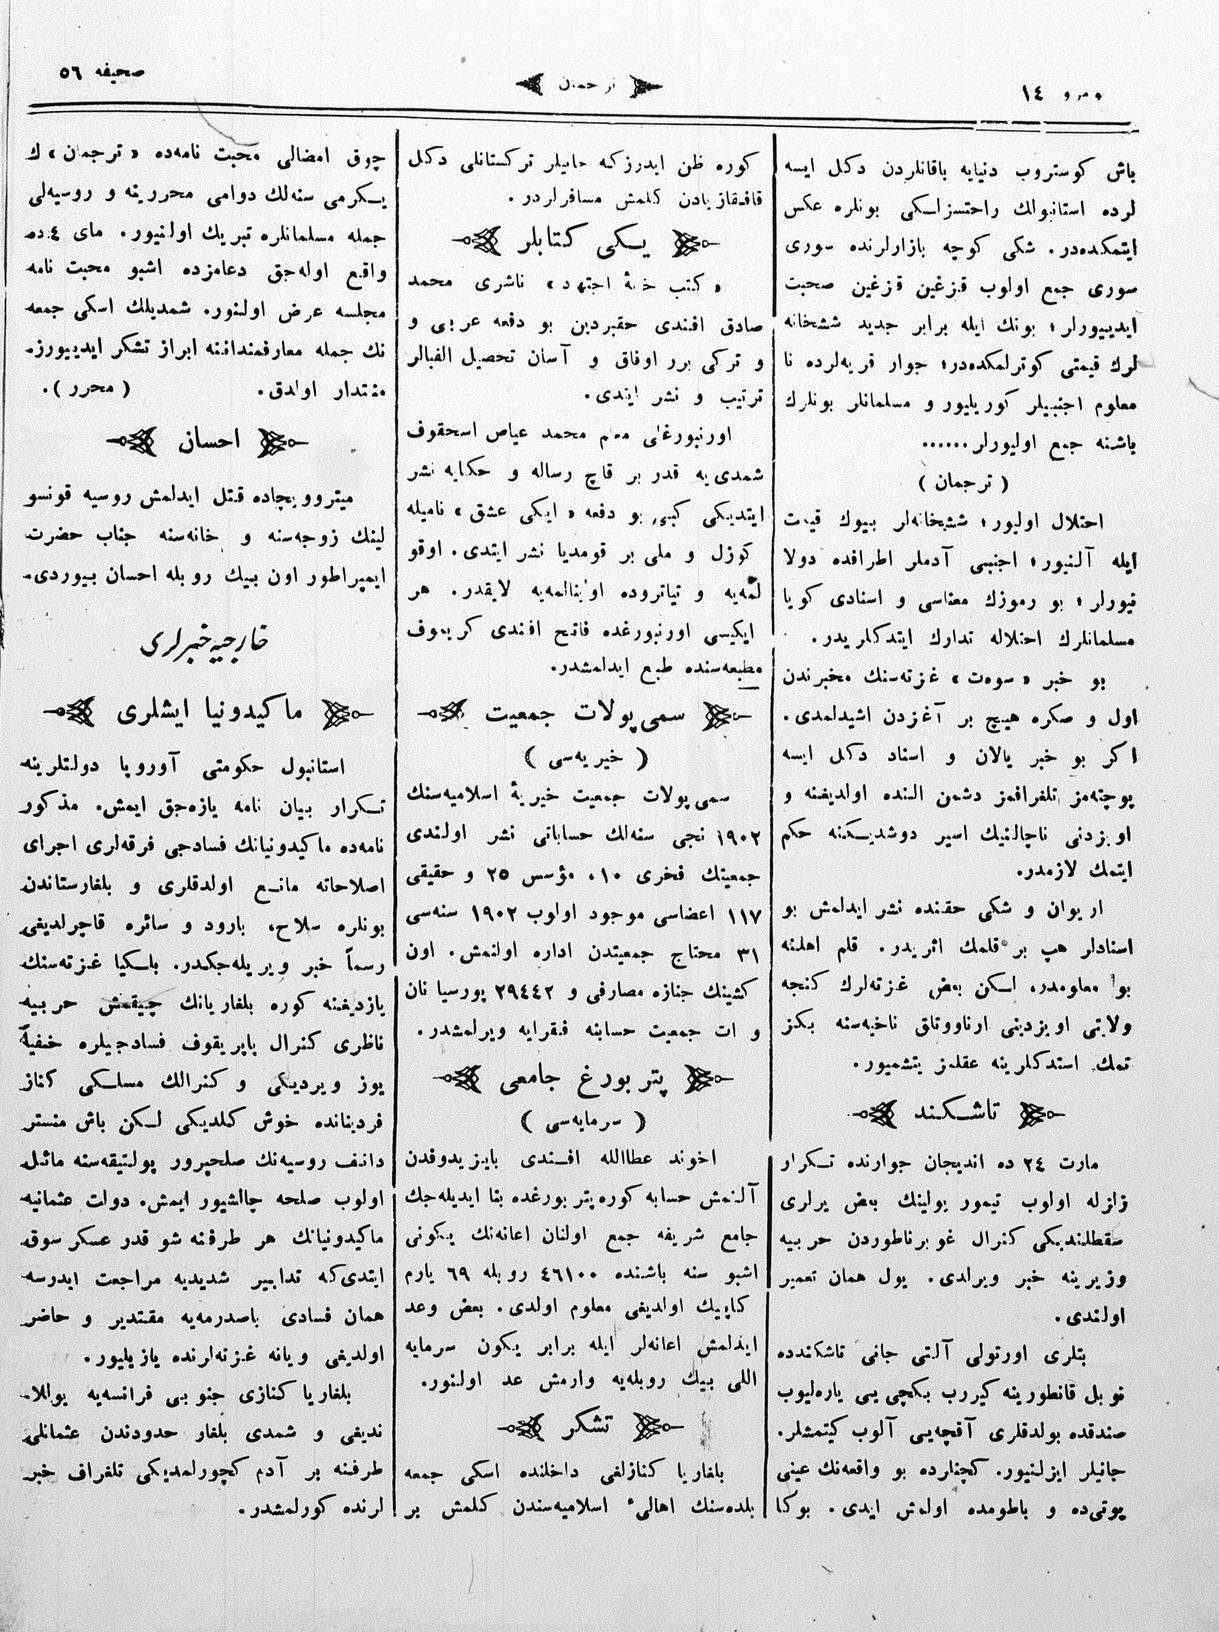 نومرو ١٤
ترجمان
صحيفه ٥٦
باش كوستروب دنيايه باقانلردن دكل ايسه
لرده استانبولك راحتسزلكی بونلره عكس
ايتمكده‌در. شكی كوچه بازارلرنده سوری
سوری جمع اولوب قزغين قزغين صحبت
ايدييورلر؛ بونك ايله برابر جديد ششخانه
لرك قيمتی كوترلمكده‌در؛ جوار قريه‌لرده نا
معلوم اجنبيلر كوريليور و مسلمانلر بونلرك
باشنه جمع اوليورلر......
( ترجمان )
احتلال اوليور؛ ششخانه‌لر بيوك قيمت
ايله آلنيور؛ اجنبی آدملر اطرافده دولا
نيورلر؛ بو رموزك معناسی و اسنادی كويا
مسلمانلرك احتلاله تدارك ايتدكلريدر.
بو خبر «سوه‌ت» غزته‌سنك مخبرندن
اول و صكره هيچ بر آغزدن اشيدلمدی.
اكر بو خبر يالان و اسناد دكل ايسه
پوچته‌مز تلغرافمز دشمن النده اولديغنه و
اويزدنی ناچالنيك اسير دوشديكنه حكم
ايتمك لازمدر.
اريوان و شكی حقنده نشر ايدلمش بو
اسنادلر هپ بر قلمك اثريدر. قلم اهلنه
بو معلومدر، لكن بعض غزته‌لرك كنجه
ولايتی اويزدينی ارناووتلق ناخيه‌سنه بكز
تمك استدكلرينه عقلمز يتشميور.
تاشكند
مارت ٢٤ ده انديجان جوارنده تكرار
زلزله اولوب تيمور يولينك بعض يرلری
سقطلنديكی كنرال غوبرناطوردن حربيه
وزيرينه خبر ويرلدی. يول همان تعمير
اولندی.
يتلری اورتولی آلتی جانی تاشكندده
نوبل قانطورينه كيررب بكچی يی ياره‌ليوب
صندقده بولدقلری آقچه‌يی آلوب كيتمشلر.
جانيلر ايزلنيور. كچنلرده بو واقعه‌نك عينی
پوتی‌ده و باطومده اولمش ايدی. بوكا
كوره ظن ايدرزكه جانيلر تركستانلی دكل
قافقازيادن كلمش مسافرلردر.
يكی كتابلر
«كتب خانهٔ اجتهاد» ناشری محمد
صادق افندی حقبردين بو دفعه عربی و
و تركی برر اوفاق و آسان تحصيل الفبالر
ترتيب و نشر ايتدی.
اورنبورغلی معلم محمد عياص اسحقوف
شمدی‌يه قدر بر قاچ رساله و حكايه نشر
ايتديكی كبی، بو دفعه «ايكی عشق» ناميله
كوزل و ملی بر قومديا نشر ايتدی. اوقو
لمه‌يه و تياتروده اوينالمه‌يه لايقدر. هر
ايكيسی اورنبورغده فاتح افندی كريموف
مطبعه‌سنده طبع ايدلمشدر.
سمی پولات جمعيت
( خيريه‌سی )
سمی پولات جمعيت خيريهٔ اسلاميه‌سنك
١٩٠٢ نجی سنه‌لك حساباتی نشر اولندی
جمعيتك فخری ١٠، مؤسس ٢٥ و حقيقی
١١٧ اعضاسی موجود اولوب ١٩٠٢ سنه‌سی
٣١ محتاج جمعيتدن اداره اولنمش. اون
كشينك جنازه مصارفی و ٢٩٤٤٢ پورسيا نان
و ات جمعيت حسابنه فقرايه ويرلمشدر.
پتربورغ جامعی
( سرمايه‌سی )
اخوند عطاالله افندی بايزيدوفدن
آلنمش حسابه كوره پتربورغده بنا ايديله‌جك
جامع شريفه جمع اولنان اعانه‌نك يكونی
اشبو سنه باشنده ٤٦١٠٠ روبله ٦٩ يارم
كاپيك اولديغی معلوم اولدی. بعض وعد
ايدلمش اعانه‌لر ايله برابر يكون سرمايه
اللی بيك روبله‌يه وارمش عد اولنور.
تشكر
بلغاريا كنازلغی داخلنده اسكی جمعه
بلده‌سنك اهالیٔ اسلاميه‌سندن كلمش بر
چوق امضالی محبت نامه‌ده «ترجمان» ك
يكرمی سنه‌لك دوامی محررينه و روسيه‌لی
جمله مسلمانلره تبريك اولنيور. مای ٤ده
واقع اوله‌جق دعامزده اشبو محبت نامه
مجلسه عرض اولنور. شمديلك اسكی جمعه
نك جمله معارفمنداننه ابراز تشكر ايدييورز.
منتدار اولدق. (محرر).
احسان
ميتروويچاده قتل ايدلمش روسيه قونسو
لينك زوجه‌سنه و خانه‌سنه جناب حضرت
ايمپراطور اون بيك روبله احسان بيوردی.
خارجيه خبرلری
ماكيدونيا ايشلری
استانبول حكومتی آوروپا دولتلرينه
تكرار بيان نامه يازه‌جق ايمش. مذكور
نامه‌ده ماكيدونيانك فسادجی فرقه‌لری اجرای
اصلاحاته مانع اولدقلری و بلغارستاندن
بونلره سلاح، بارود و سائره قاچرلديغی
رسماً خبر ويريله‌جكدر. بلكيا غزته‌سنك
يازديغنه كوره بلغاريانك چيقمش حربيه
ناظری كنرال پاپريقوف فسادجيلره خفيةً
يوز ويرديكی و كنرالك مسلكی كناز
فرديناند‌ه خوش كلديكی لكن باش منستر
دانف روسيه‌نك صلحپرور پولتيقه‌سنه مائل
اولوب صلحه چالشيور ايمش. دولت عثمانيه
ماكيدونيانك هر طرفنه شو قدر عسكر سوق
ايتدی‌كه تدابير شديديه مراجعت ايدرسه
همان فسادی باصدرمه‌يه مقتدير و حاضر
اولديغی ويانه غزته‌لرنده يازيليور.
بلغاريا كنازی جنوبی فرانسه‌يه يوللا‌
نديغی و شمدی بلغار حدودندن عثمانلی
طرفنه بر آدم كچورلمديكی تلغراف خبر
لرنده كورلمشدر.